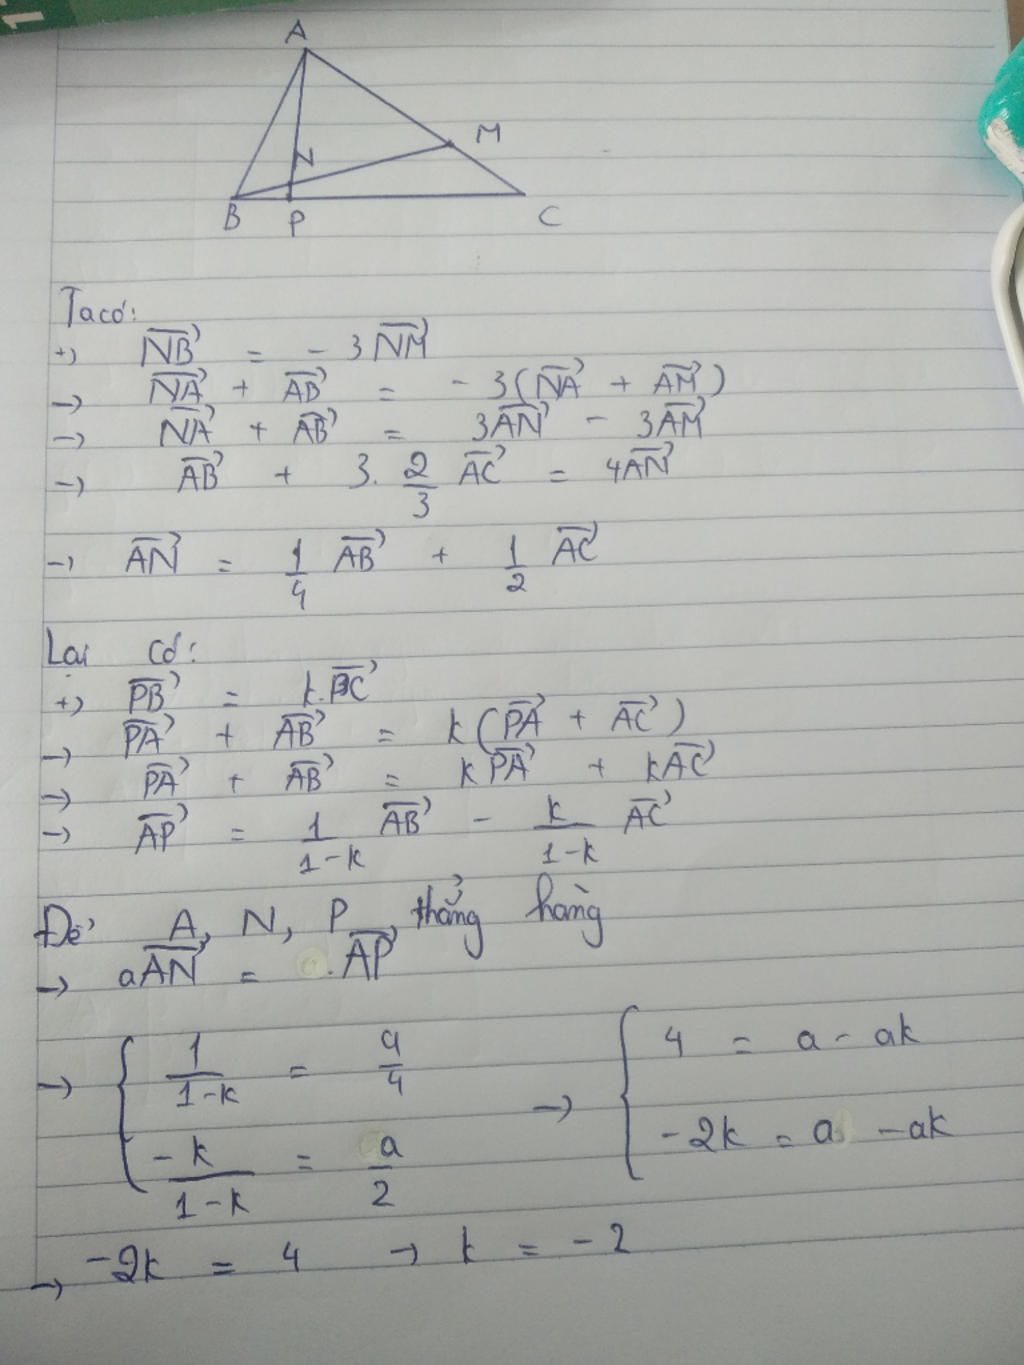 A
M
N
B
P
C
Ta có:
+) $\overrightarrow{NB} = -3\overrightarrow{NM}$
→ $\overrightarrow{NA} + \overrightarrow{AB} = -3(\overrightarrow{NA} + \overrightarrow{AM})$
→ $\overrightarrow{NA} + \overrightarrow{AB} = 3\overrightarrow{AN} - 3\overrightarrow{AM}$
→ $\overrightarrow{AB} + 3.\frac{2}{3}\overrightarrow{AC} = 4\overrightarrow{AN}$
→ $\overrightarrow{AN} = \frac{1}{4}\overrightarrow{AB} + \frac{1}{2}\overrightarrow{AC}$
Lại có:
+) $\overrightarrow{PB} = k.\overrightarrow{PC}$
→ $\overrightarrow{PA} + \overrightarrow{AB} = k(\overrightarrow{PA} + \overrightarrow{AC})$
→ $\overrightarrow{PA} + \overrightarrow{AB} = k\overrightarrow{PA} + k\overrightarrow{AC}$
→ $\overrightarrow{AP} = \frac{1}{1-k}\overrightarrow{AB} - \frac{k}{1-k}\overrightarrow{AC}$
Để A, N, P thẳng hàng
→ $a\overrightarrow{AN} = .\overrightarrow{AP}$
→ $\begin{cases} \frac{1}{1-k} = \frac{a}{4} \\ \frac{-k}{1-k} = \frac{a}{2} \end{cases}$ → $\begin{cases} 4 = a - ak \\ -2k = a - ak \end{cases}$
→ $-2k = 4$ → $k = -2$